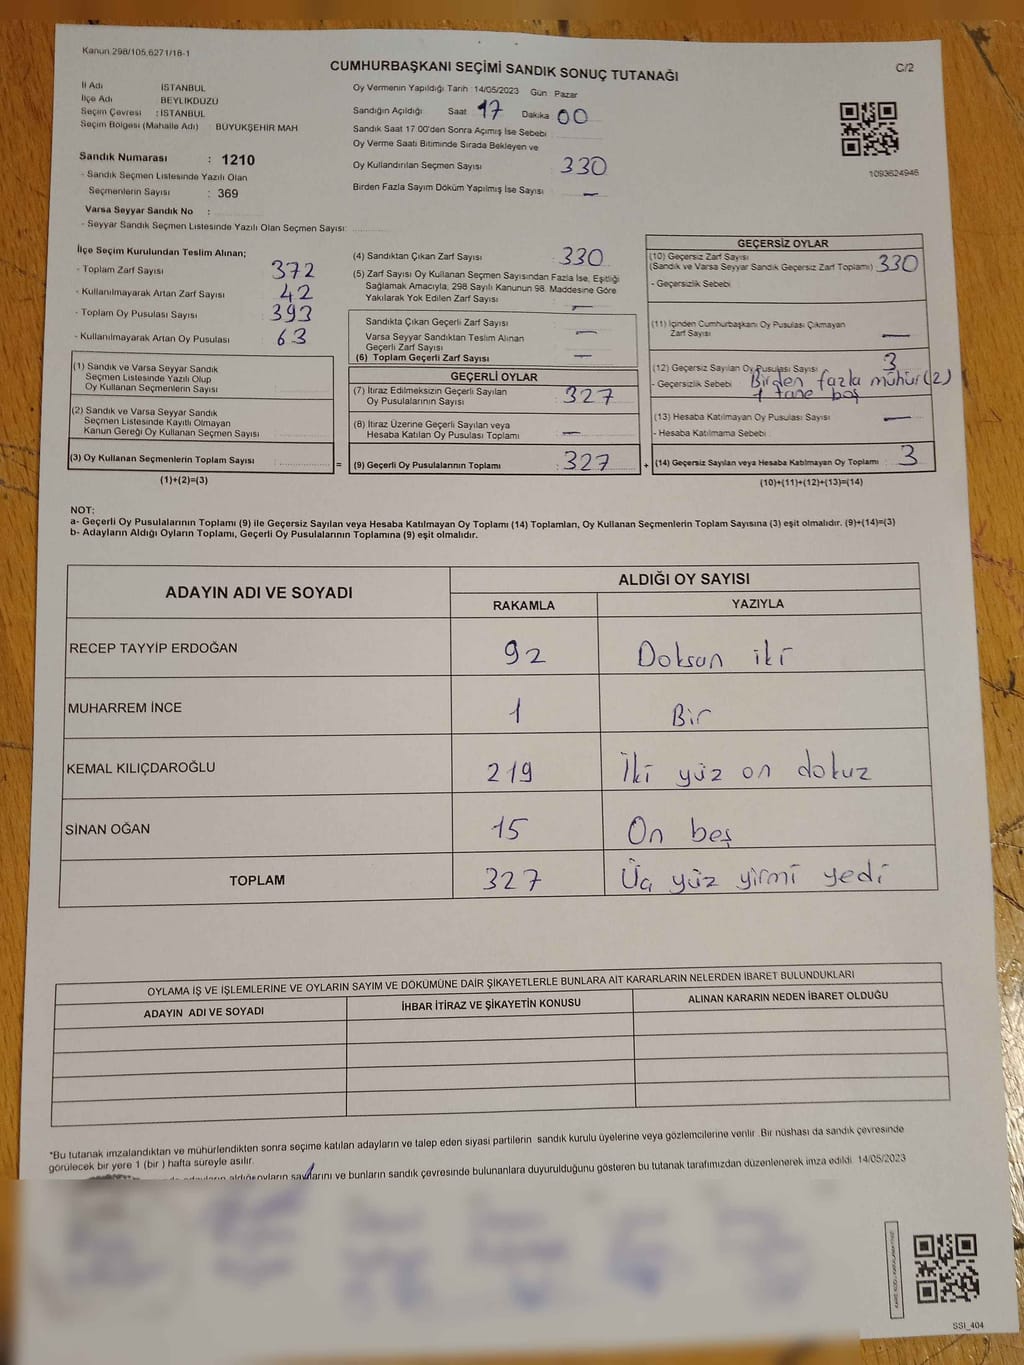 Kanun 298/105,6271/18-1
C/2
CUMHURBAŞKANI SEÇİMİ SANDIK SONUÇ TUTANAĞI
İl Adı İSTANBUL
İlçe Adı BEYLİKDÜZÜ
Seçim Çevresi : İSTANBUL
Seçim Bölgesi (Mahalle Adı) : BÜYÜKŞEHİR MAH
Sandık Numarası : 1210
- Sandık Seçmen Listesinde Yazılı Olan
Seçmenlerin Sayısı : 369
Varsa Seyyar Sandık No :
- Seyyar Sandık Seçmen Listesinde Yazılı Olan Seçmen Sayısı:
Oy Vermenin Yapıldığı Tarih 14/05/2023 Gün Pazar
Sandığın Açıldığı Saat 17 Dakika 00
Sandık Saat 17.00'den Sonra Açımış İse Sebebi
Oy Verme Saati Bitiminde Sırada Bekleyen ve
Oy Kullandırılan Seçmen Sayısı 330
Birden Fazla Sayım Döküm Yapılmış İse Sayısı —
1093624946
İlçe Seçim Kurulundan Teslim Alınan;
- Toplam Zarf Sayısı 372
- Kullanılmayarak Artan Zarf Sayısı 42
- Toplam Oy Pusulası Sayısı 393
- Kullanılmayarak Artan Oy Pusulası 63
(1) Sandık ve Varsa Seyyar Sandık
Seçmen Listesinde Yazılı Olup
Oy Kullanan Seçmenlerin Sayısı
(2) Sandık ve Varsa Seyyar Sandık
Seçmen Listesinde Kayıtlı Olmayan
Kanun Gereği Oy Kullanan Seçmen Sayısı
(3) Oy Kullanan Seçmenlerin Toplam Sayısı
(1)+(2)=(3)
=
(4) Sandıktan Çıkan Zarf Sayısı 330
(5) Zarf Sayısı Oy Kullanan Seçmen Sayısından Fazla İse, Eşitliği
Sağlamak Amacıyla, 298 Sayılı Kanunun 98. Maddesine Göre
Yakılarak Yok Edilen Zarf Sayısı —
Sandıkta Çıkan Geçerli Zarf Sayısı —
Varsa Seyyar Sandıktan Teslim Alınan
Geçerli Zarf Sayısı
(6) Toplam Geçerli Zarf Sayısı —
GEÇERLİ OYLAR
(7) İtiraz Edilmeksizin Geçerli Sayılan
Oy Pusulalarının Sayısı 327
(8) İtiraz Üzerine Geçerli Sayılan veya
Hesaba Katılan Oy Pusulası Toplamı —
(9) Geçerli Oy Pusulalarının Toplamı : 327
+
GEÇERSİZ OYLAR
(10) Geçersiz Zarf Sayısı
(Sandık ve Varsa Seyyar Sandık Geçersiz Zarf Toplamı) 330
- Geçersizlik Sebebi
(11) İçinden Cumhurbaşkanı Oy Pusulası Çıkmayan
Zarf Sayısı —
(12) Geçersiz Sayılan Oy Pusulası Sayısı 3
- Geçersizlik Sebebi Birden fazla mühür(2)
1 tane boş
(13) Hesaba Katılmayan Oy Pusulası Sayısı —
- Hesaba Katılmama Sebebi
(14) Geçersiz Sayılan veya Hesaba Katılmayan Oy Toplamı 3
(10)+(11)+(12)+(13)=(14)
NOT:
a- Geçerli Oy Pusulalarının Toplamı (9) ile Geçersiz Sayılan veya Hesaba Katılmayan Oy Toplamı (14) Toplamları, Oy Kullanan Seçmenlerin Toplam Sayısına (3) eşit olmalıdır. (9)+(14)=(3)
b- Adayların Aldığı Oyların Toplamı, Geçerli Oy Pusulalarının Toplamına (9) eşit olmalıdır.
ADAYIN ADI VE SOYADI
ALDIĞI OY SAYISI
RAKAMLA YAZIYLA
RECEP TAYYİP ERDOĞAN 92 Doksan iki
MUHARREM İNCE 1 Bir
KEMAL KILIÇDAROĞLU 219 İki yüz on dokuz
SİNAN OĞAN 15 On beş
TOPLAM 327 Üç yüz yirmi yedi
OYLAMA İŞ VE İŞLEMLERİNE VE OYLARIN SAYIM VE DÖKÜMÜNE DAİR ŞİKAYETLERLE BUNLARA AİT KARARLARIN NELERDEN İBARET BULUNDUKLARI
ADAYIN ADI VE SOYADI İHBAR İTİRAZ VE ŞİKAYETİN KONUSU ALINAN KARARIN NEDEN İBARET OLDUĞU
*Bu tutanak imzalandıktan ve mühürlendikten sonra seçime katılan adayların ve talep eden siyasi partilerin sandık kurulu üyelerine veya gözlemcilerine verilir. Bir nüshası da sandık çevresinde
görülecek bir yere 1 (bir ) hafta süreyle asılır.
adayların aldığı oyların sayılarını ve bunların sandık çevresinde bulunanlara duyurulduğunu gösteren bu tutanak tarafımızdan düzenlenerek imza edildi 14/05/2023
SSI_404